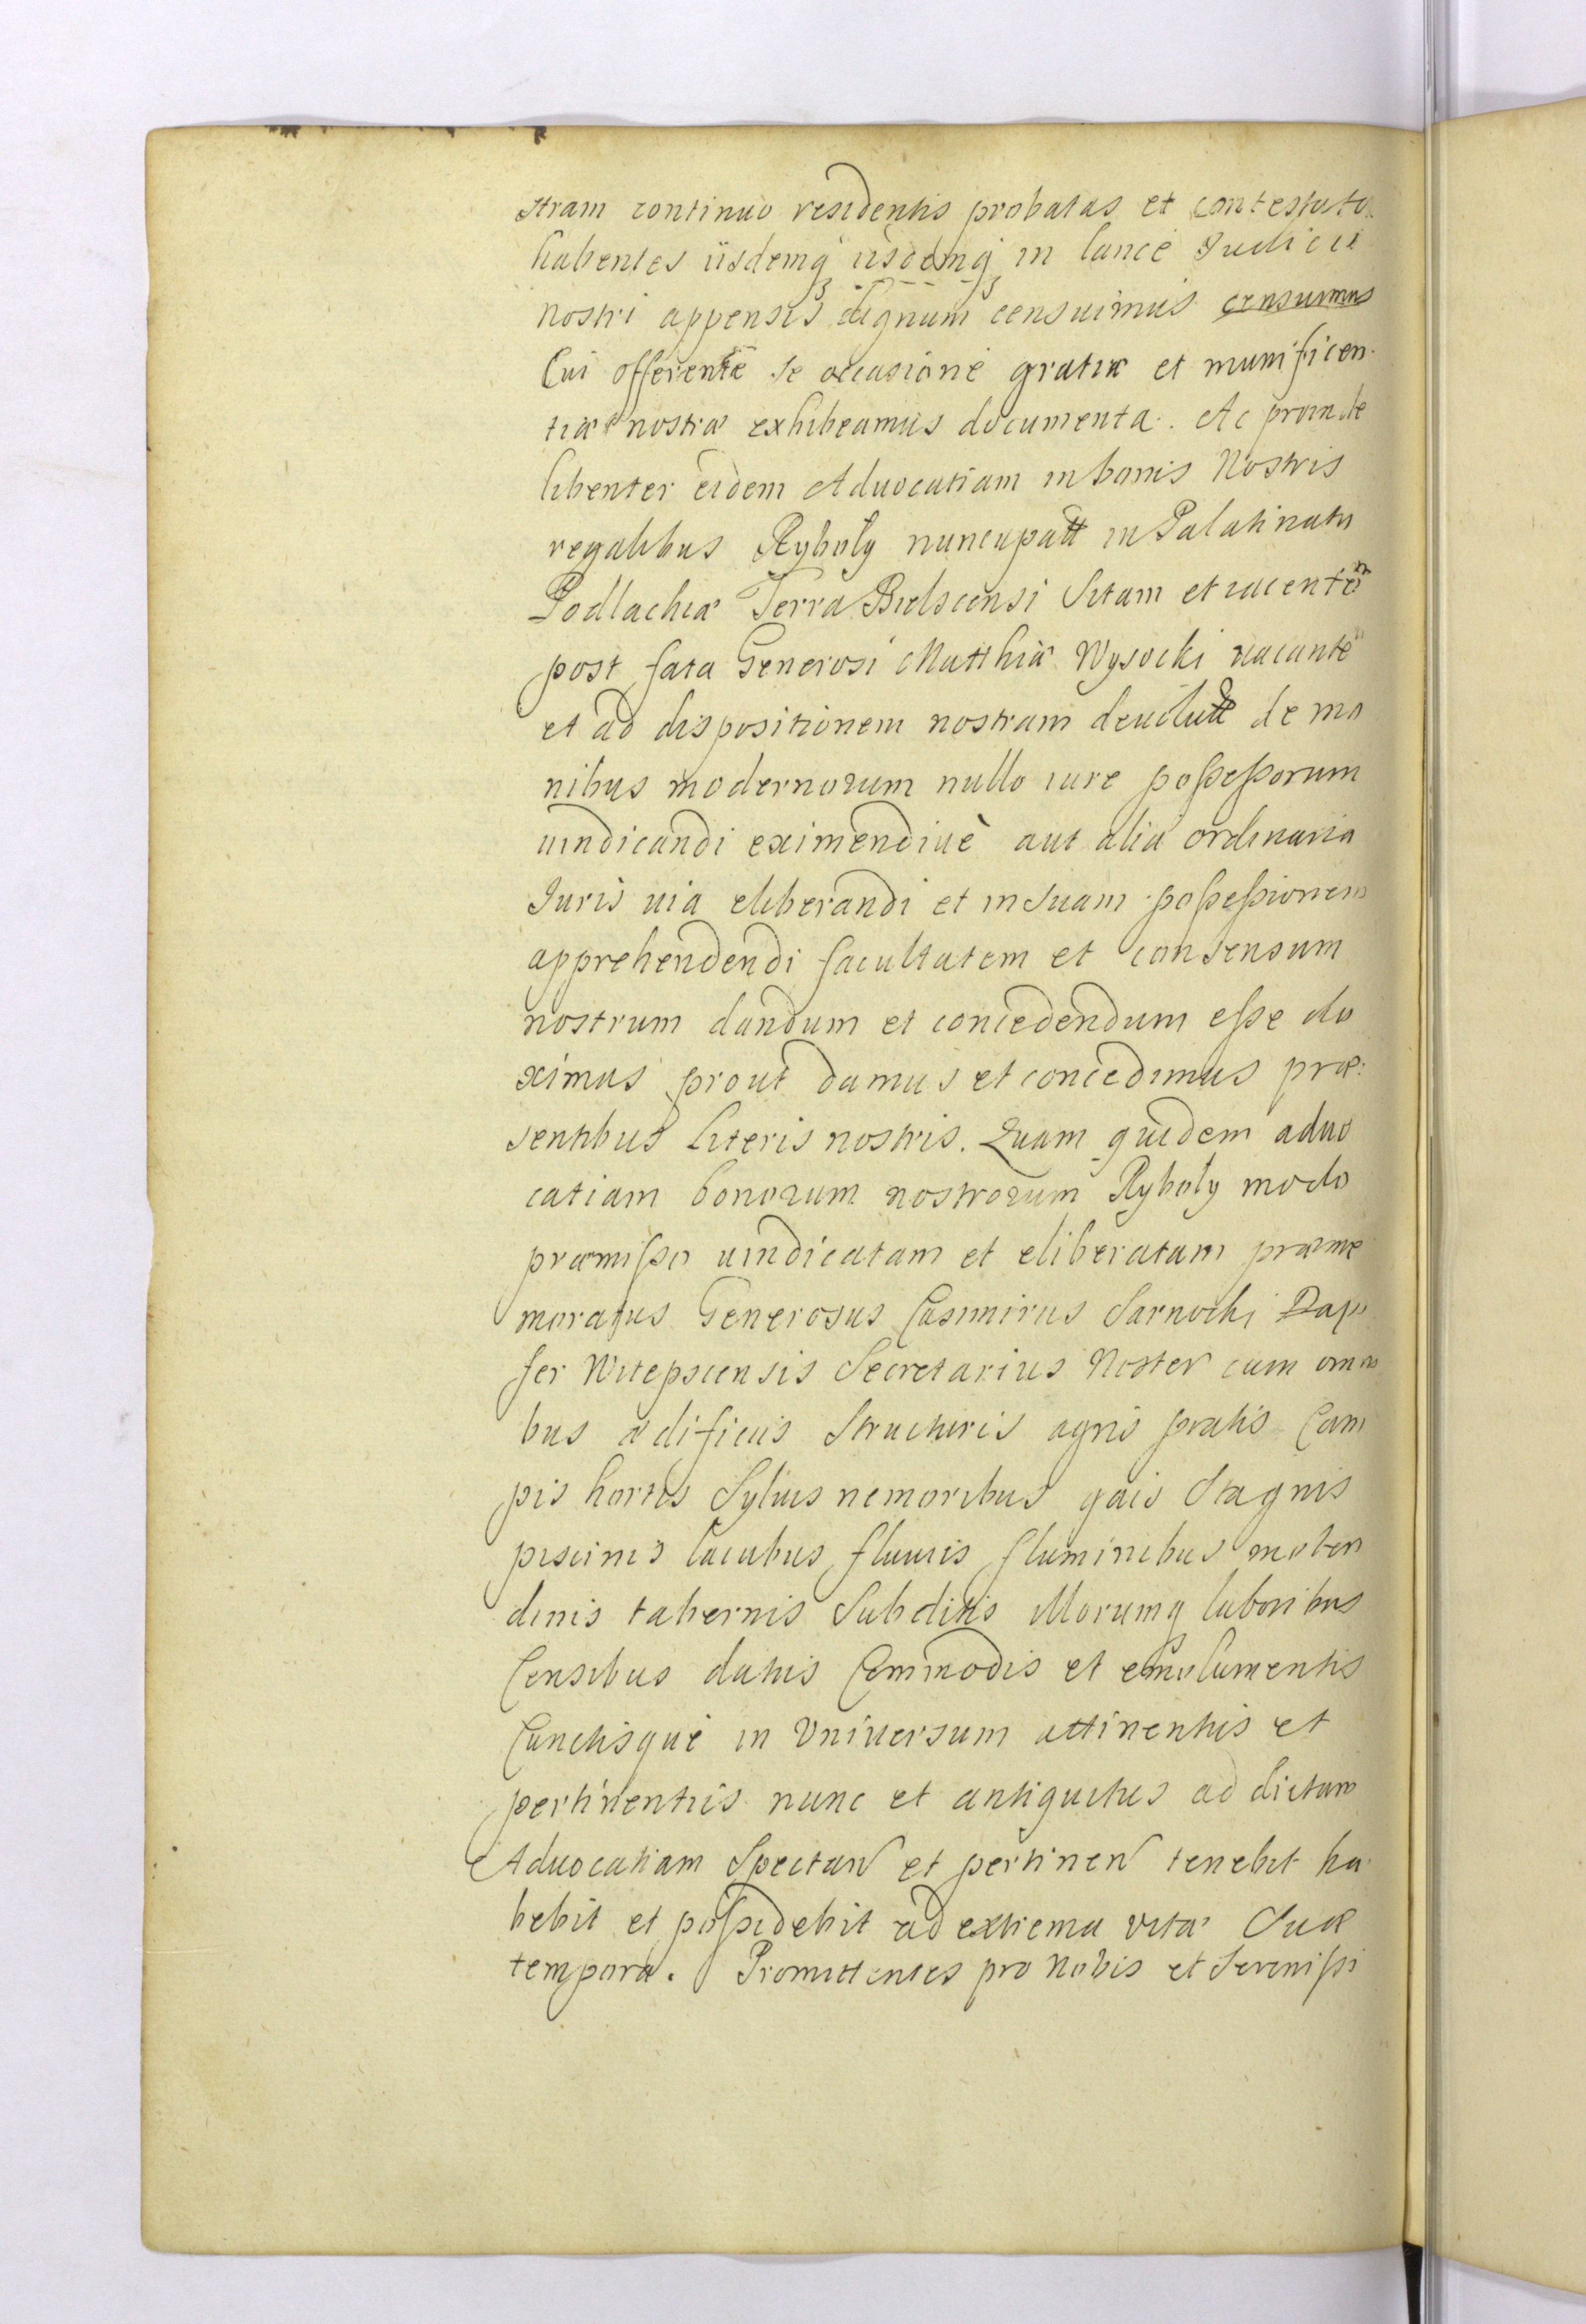 stram continuo residentis probatas et contestata
habentes iisdemq iisdemq in lance Iudicii
nostri appensis dignum censuimus censuimus
Cui offerente se occasione gratiæ et munificen
tiæ nostræ exhibeamus documenta. Ac proinde
libenter eidem Aduocatiam in bonis Nostris
regalibus Ryboly nuncupatt in Palatinatu
Podlachiæ Terra Bielscensi Sitam et iacentem
post fata Generosi Matthiæ Wysocki vacante
et ad dispositionem nostram deuolutt de ma
nibus modernorum nullo iure poßeßorum
uindicandi eximendiuè aut alia ordinaria
Iuris uia eliberandi et in suam poßeßionem
apprehendendi facultatem et consensum
nostrum dandum et concedendum eße du
ximus prout damus et concedimus præ:
sentibus literis nostris. Quam quidem aduo
catiam bonorum nostrorum Ryboly modo
præmißo uindicatam et eliberatam præme
moratus Generosus Casimirus Sarnocki Dapi
fer Witepscensis Secretarius Noster cum omni
bus ædificiis Structuris agris pratis Cam
pis hortis Syluis nemoribus gais Stagnis
piscinis lacubus fluuiis fluminibus molen
dinis tabernis Subditis illorumq laboribus
Censibus datiis Commodis et emolumentis
Cunctisque in Vniuersum attinentiis et
pertinentiis nunc et antiquitus ad dictam
Aduocatiam Spectan et pertinen tenebit ha
bebit et poßidebit ad extrema vitæ Suæ
tempora. Promittentes pro Nobis et Serenißi